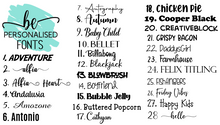 be
PERSONALISED
FONTS
1. ADVENTURE
2. alfie
3. Alfie Heart
4. Andalusia
5. Amazone
6. Antonio
7. Autography
8. Autumn
9. Baby Child
10. BELLET
11. Billabong
12. Blackjack
13. BLOWBRUSH
14. Boyfriend
15. Bubble Jelly
16. Buttered Popcorn
17. Cathyan
18. CHICKEN PIE
19. Cooper Black
20. CREATIVEBLOCK
21. CRISPY BACON
22. DaddysGirl
23. Farmhouse
24. FELIX TITLING
25.
26. Friday Vibes
27. Happy Kids
28. hello